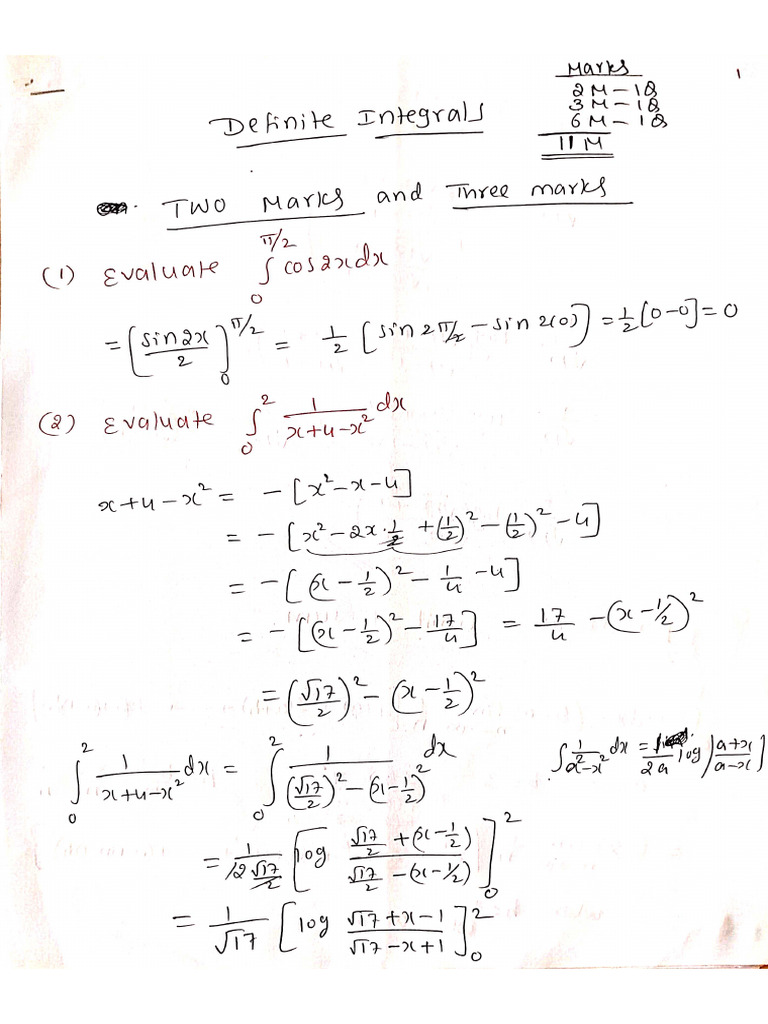 Marks
2M – 1Q
3M – 1Q
6M – 1Q
11M
1
Definite Integrals
Two Marks and Three marks
(1) Evaluate ∫₀^{π/2} cos2x dx
= [sin2x/2]₀^{π/2} = 1/2 [sin 2π/2 – sin 2(0)] = 1/2 [0–0] = 0
(2) Evaluate ∫₀² 1/(x+4–x²) dx
x+4–x² = –[x²–x–4]
= –[x²–2x·1/2 + (1/2)² – (1/2)² – 4]
= –[(x–1/2)² – 1/4 – 4]
= –[(x–1/2)² – 17/4] = 17/4 – (x–1/2)²
= (√17/2)² – (x–1/2)²
∫₀² 1/(x+4–x²) dx = ∫₀² 1/((√17/2)² – (x–1/2)²) dx
∫ 1/(a²–x²) dx = 1/2a log|(a+x)/(a–x)|
= 1/(2 √17/2) [log (√17/2 + (x–1/2))/(√17/2 – (x–1/2))]₀²
= 1/√17 [log (√17+x–1)/(√17–x+1)]₀²